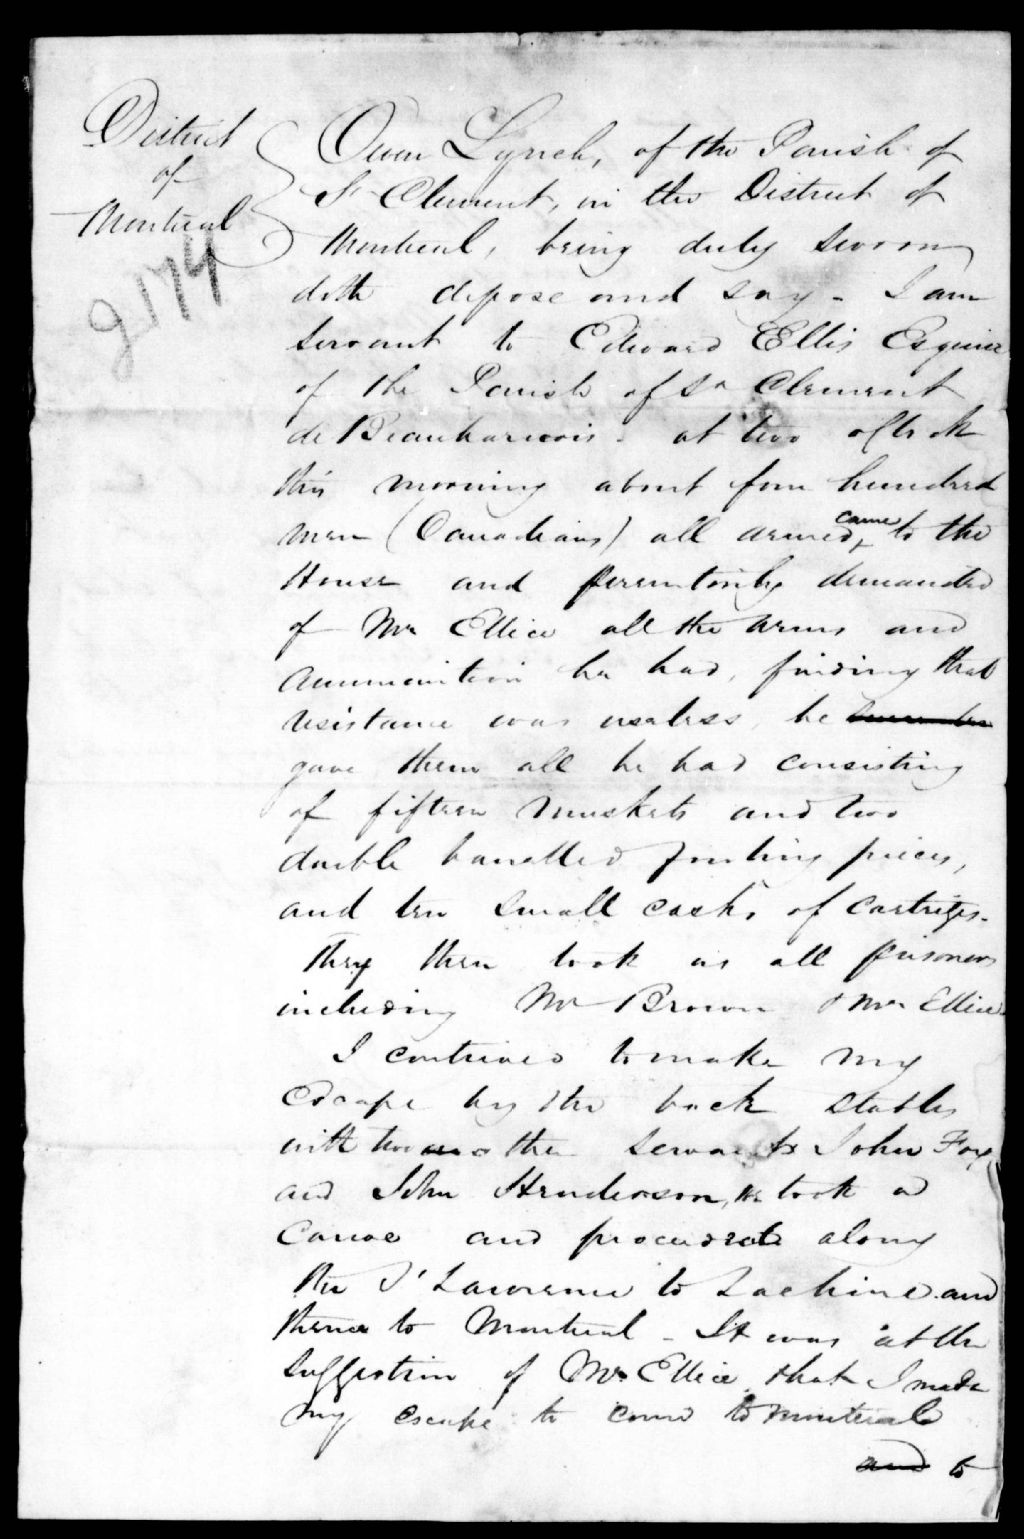 District
of
Montreal
2174
Owen Lynch, of the Parish of
St Clement, in the District of
Montreal, being duly sworn
doth depose and say - I am
servant to Edward Ellis Esquire
of the Parish of St Clement
de Beauharnois - at two oClock
this morning about four hundred
men (Canadians) all armed, came to the
House and peremtorily demanded
of Mr Ellice all the arms and
ammunition he had, finding that
resistance was useless, he surrender
gave them all he had consisting
of fifteen muskets and two
double barrelled fowling pieces,
and ten small casks of cartriges.
They then took us all prisoners
including Mr Brown & Mr Ellice.
I contrived to make my
Escape by the back stables
with two other servants John Fox
and John Henderson, We took a
Canoe and proceeded along
the St Lawrence to Lachine and
thence to Montreal - It was at the
suggestion of Mr Ellice that I made
my escape to come to Montreal
and to